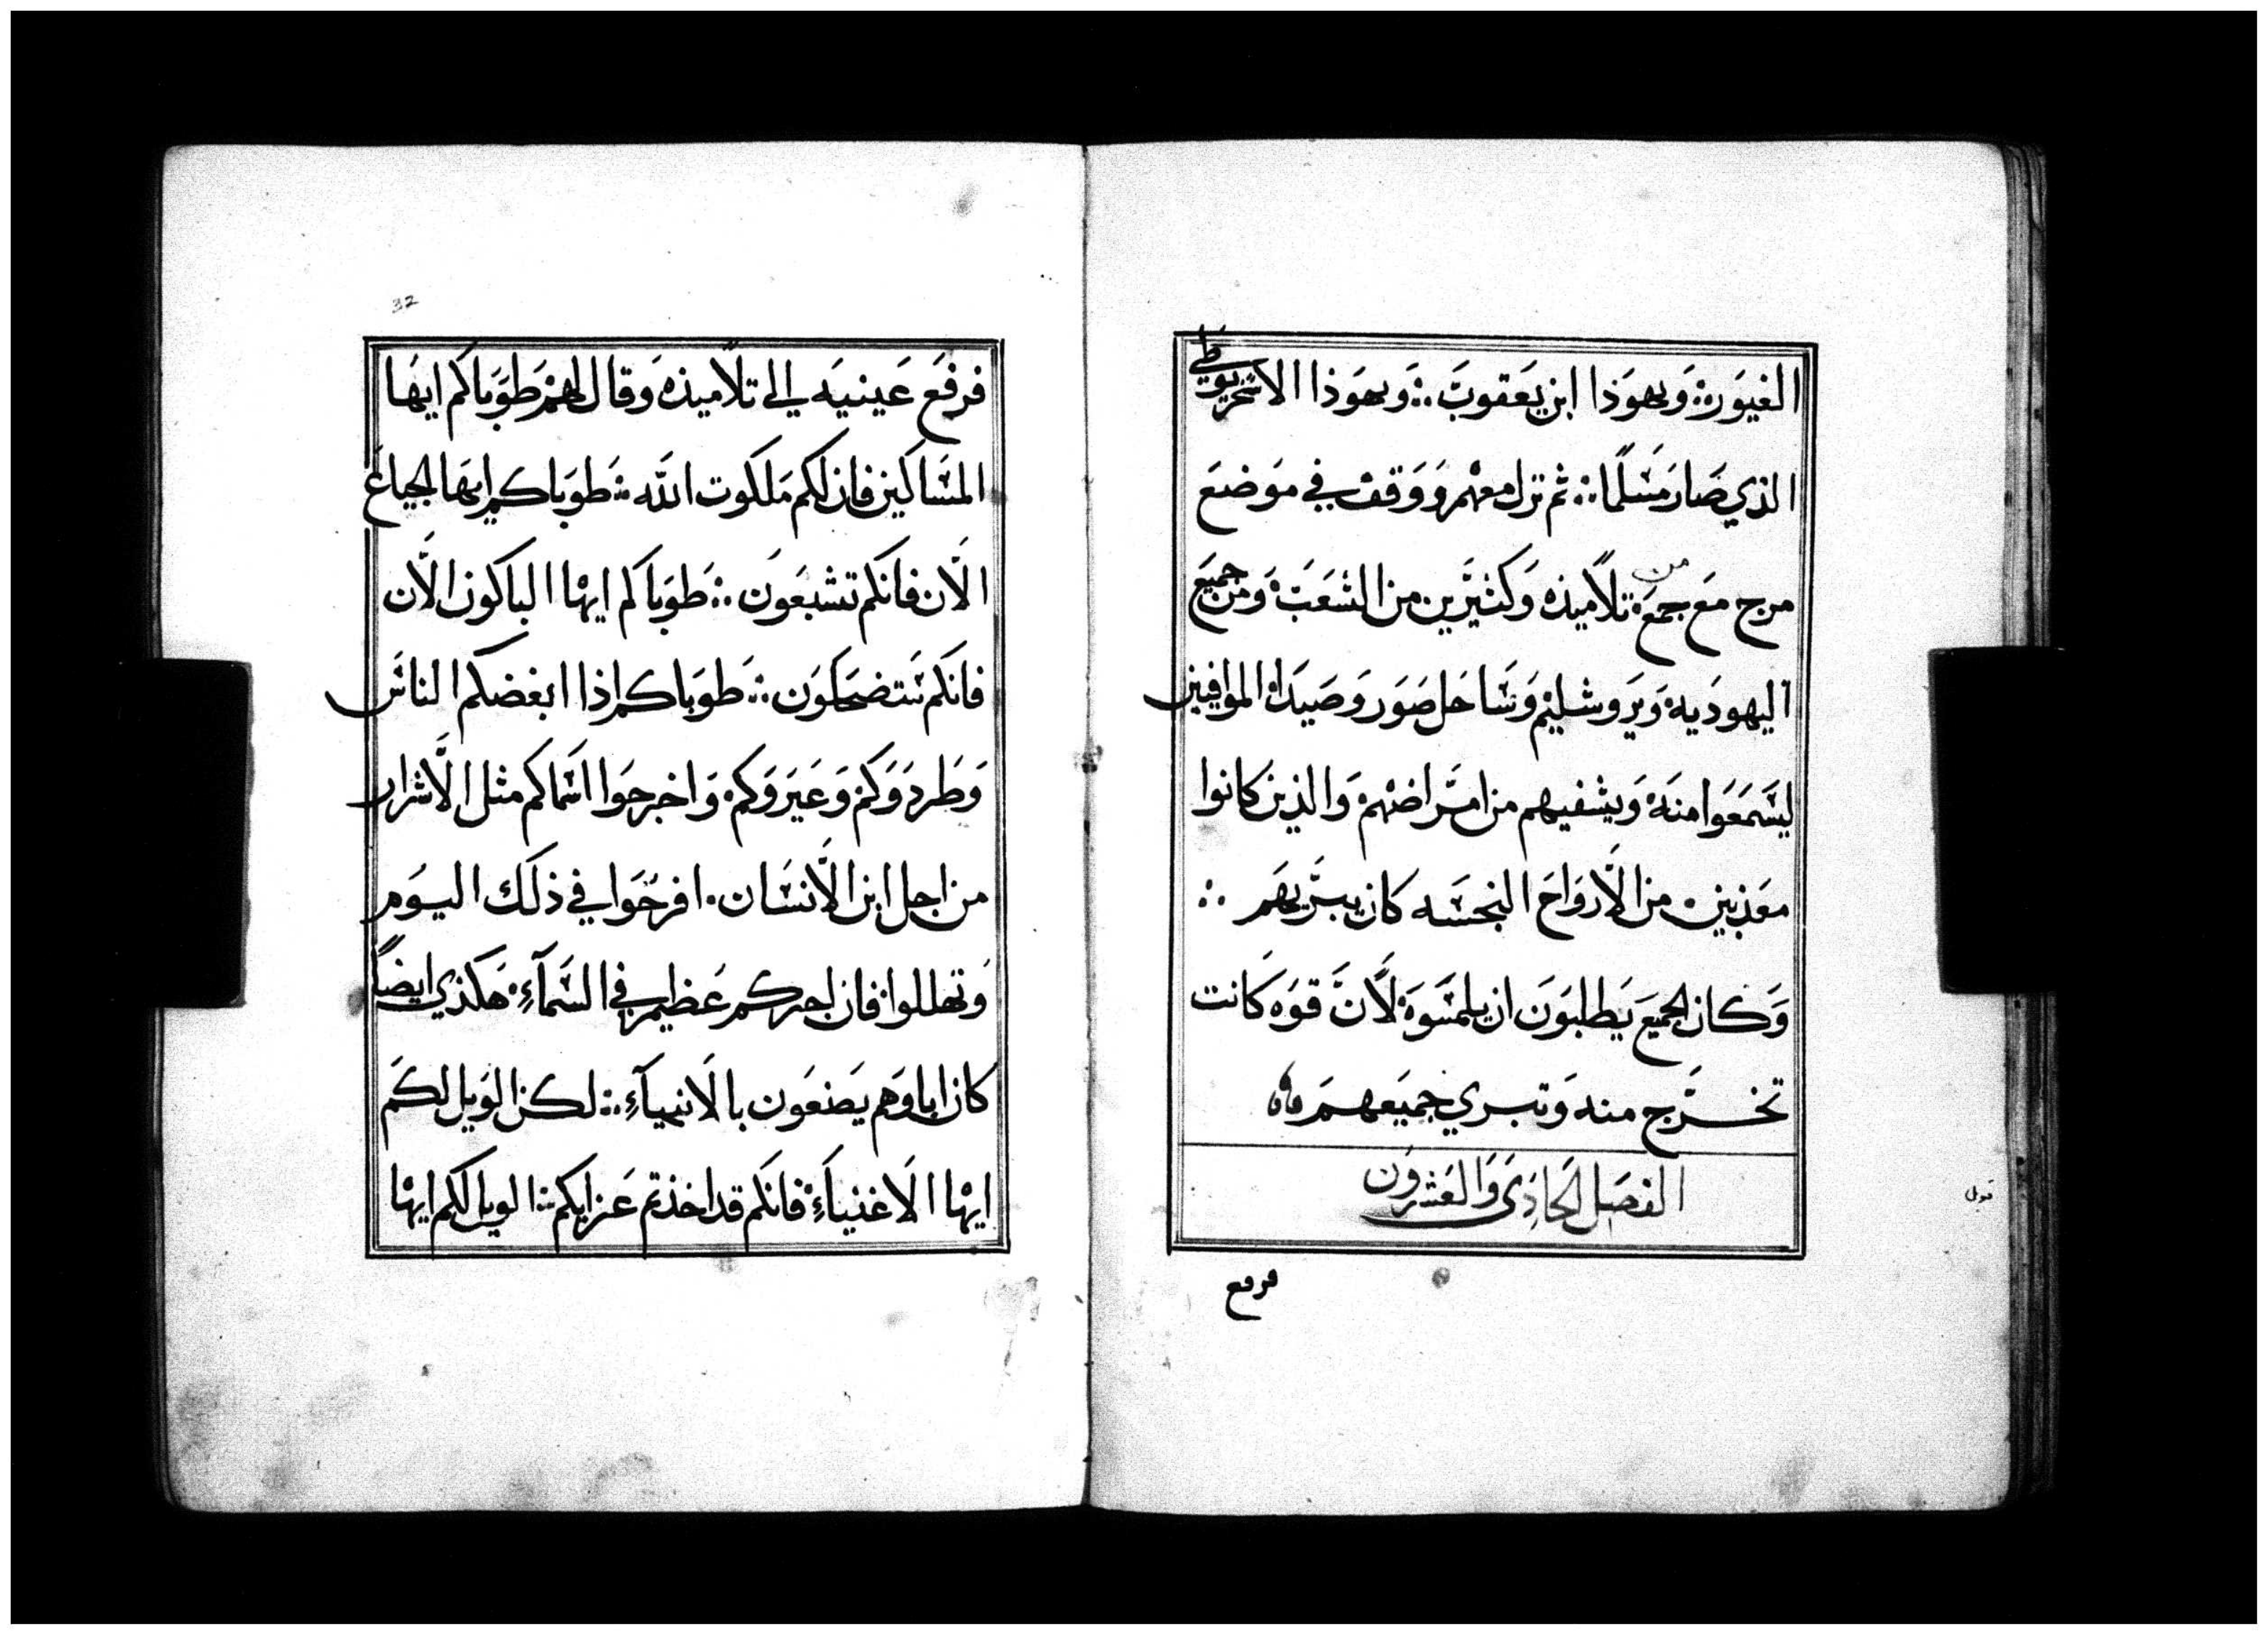 الغيور ∴ ويهوذا ابن يعقوب ∴ ويهوذا الاسخريوطي
الذي صار مسلما ∴ ثم نزل معهم ووقف في موضع
مرج مع جمع من تلاميذه وكثيرين من الشعب ومن جميع
اليهوديه ويروشليم وساحل صور وصيدا الموافيين
ليسمعوا منه ويشفيهم من امراضهم والذين كانوا
معذبين من الارواح النجسه كان يبريهم ∴
وكان الجميع يطلبون ان يلمسوه لان قوه كانت
تخرج منه وتبري جميعهم
الفصل الحادي والعشرون
فرفع
قبطي
32
فرفع عينيه الى تلاميذه وقال لهم طوباكم ايها
المساكين فان لكم ملكوت الله ∴ طوباكم ايها الجياع
الان فانكم تشبعون ∴ طوباكم ايها الباكون الان
فانكم ستضحكون ∴ طوباكم اذا ابغضكم الناس
وطردوكم وعيروكم واخرجوا اسماكم مثل الاشرار
من اجل ابن الانسان . افرحوا في ذلك اليوم
وتهللوا فان اجركم عظيم في السمآء هكذي ايضاً
كان اباوهم يصنعون بالانبيآء ∴ لكن الويل لكم
ايها الاغنياء فانكم قد اخذتم عزايكم ∴ الويل لكم ايها